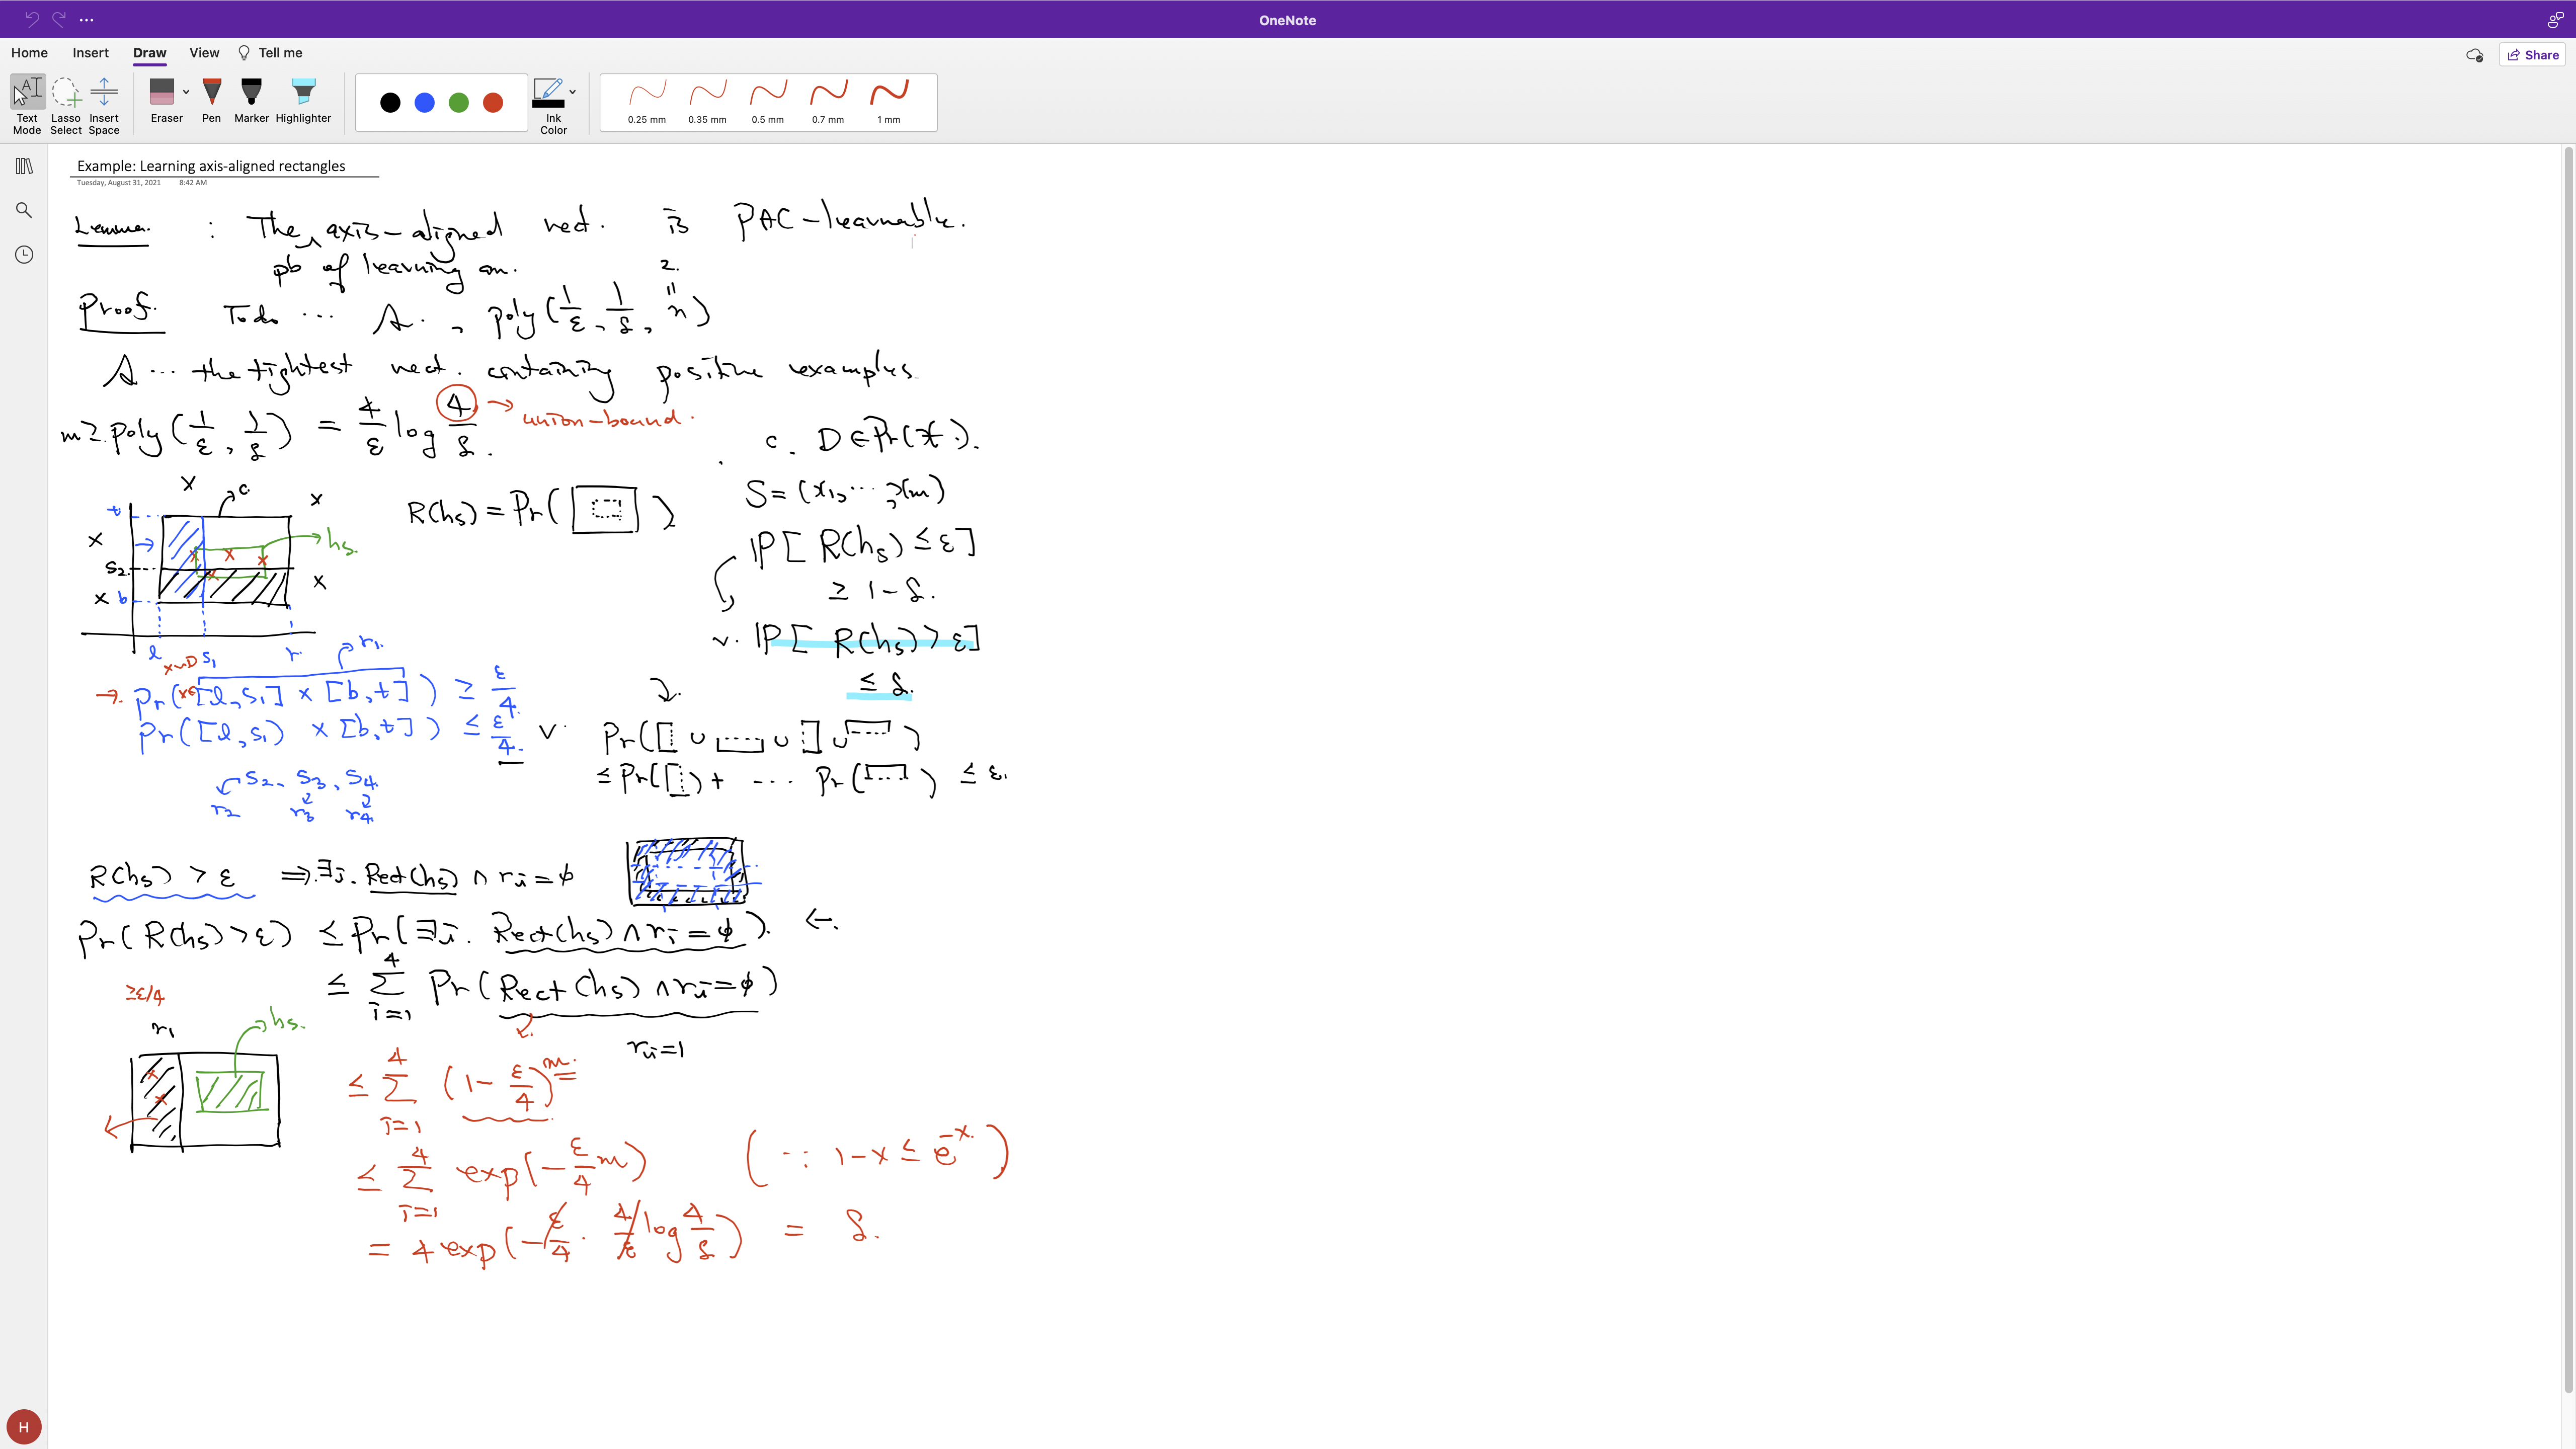 OneNote
Home Insert Draw View Tell me
Share
Text Mode
Lasso Select
Insert Space
Eraser
Pen
Marker
Highlighter
Ink Color
0.25 mm 0.35 mm 0.5 mm 0.7 mm 1 mm
Example: Learning axis-aligned rectangles
Tuesday, August 31, 2021 8:42 AM
Lemma. : The axis-aligned rect. is PAC-learnable.
pb of learning an.
2.
=
Proof. Todo ... A. , poly(1/ε, 1/δ, n)
A ... the tightest rect. containing positive examples.
m ≥ poly(1/ε, 1/δ) = 4/ε log 4/δ. → union-bound.
c. D ∈ Pr(X).
S = (x1, ..., xm)
R(hs) = Pr( )
P[ R(hs) ≤ ε ]
≥ 1 - δ.
v. P[ R(hs) > ε ]
≤ δ.
x c. x
t
x → x x x hs.
s2. x
x b
l s1 r. r1.
x~D
→. Pr(x∈[l, s1] × [b, t]) ≥ ε/4.
Pr([l, s1) × [b, t]) ≤ ε/4. v.
s2, s3, s4.
r2 r3 r4.
Pr( ∪ ∪ ∪ )
≤ Pr( ) + ... Pr( ) ≤ ε.
R(hs) > ε ⟹ ∃i. Rect(hs) ∧ ri = ϕ
Pr(R(hs) > ε) ≤ Pr(∃i. Rect(hs) ∧ ri = ϕ). ←.
≤ Σ_{i=1}^{4} Pr(Rect(hs) ∧ ri = ϕ)
≥ε/4
r1 hs.
ri=1
≤ Σ_{i=1}^{4} (1 - ε/4)^m
≤ Σ_{i=1}^{4} exp(-ε/4 m) (∵ 1-x ≤ e^{-x})
= 4 exp(-ε/4 · 4/ε log 4/δ) = δ.
H